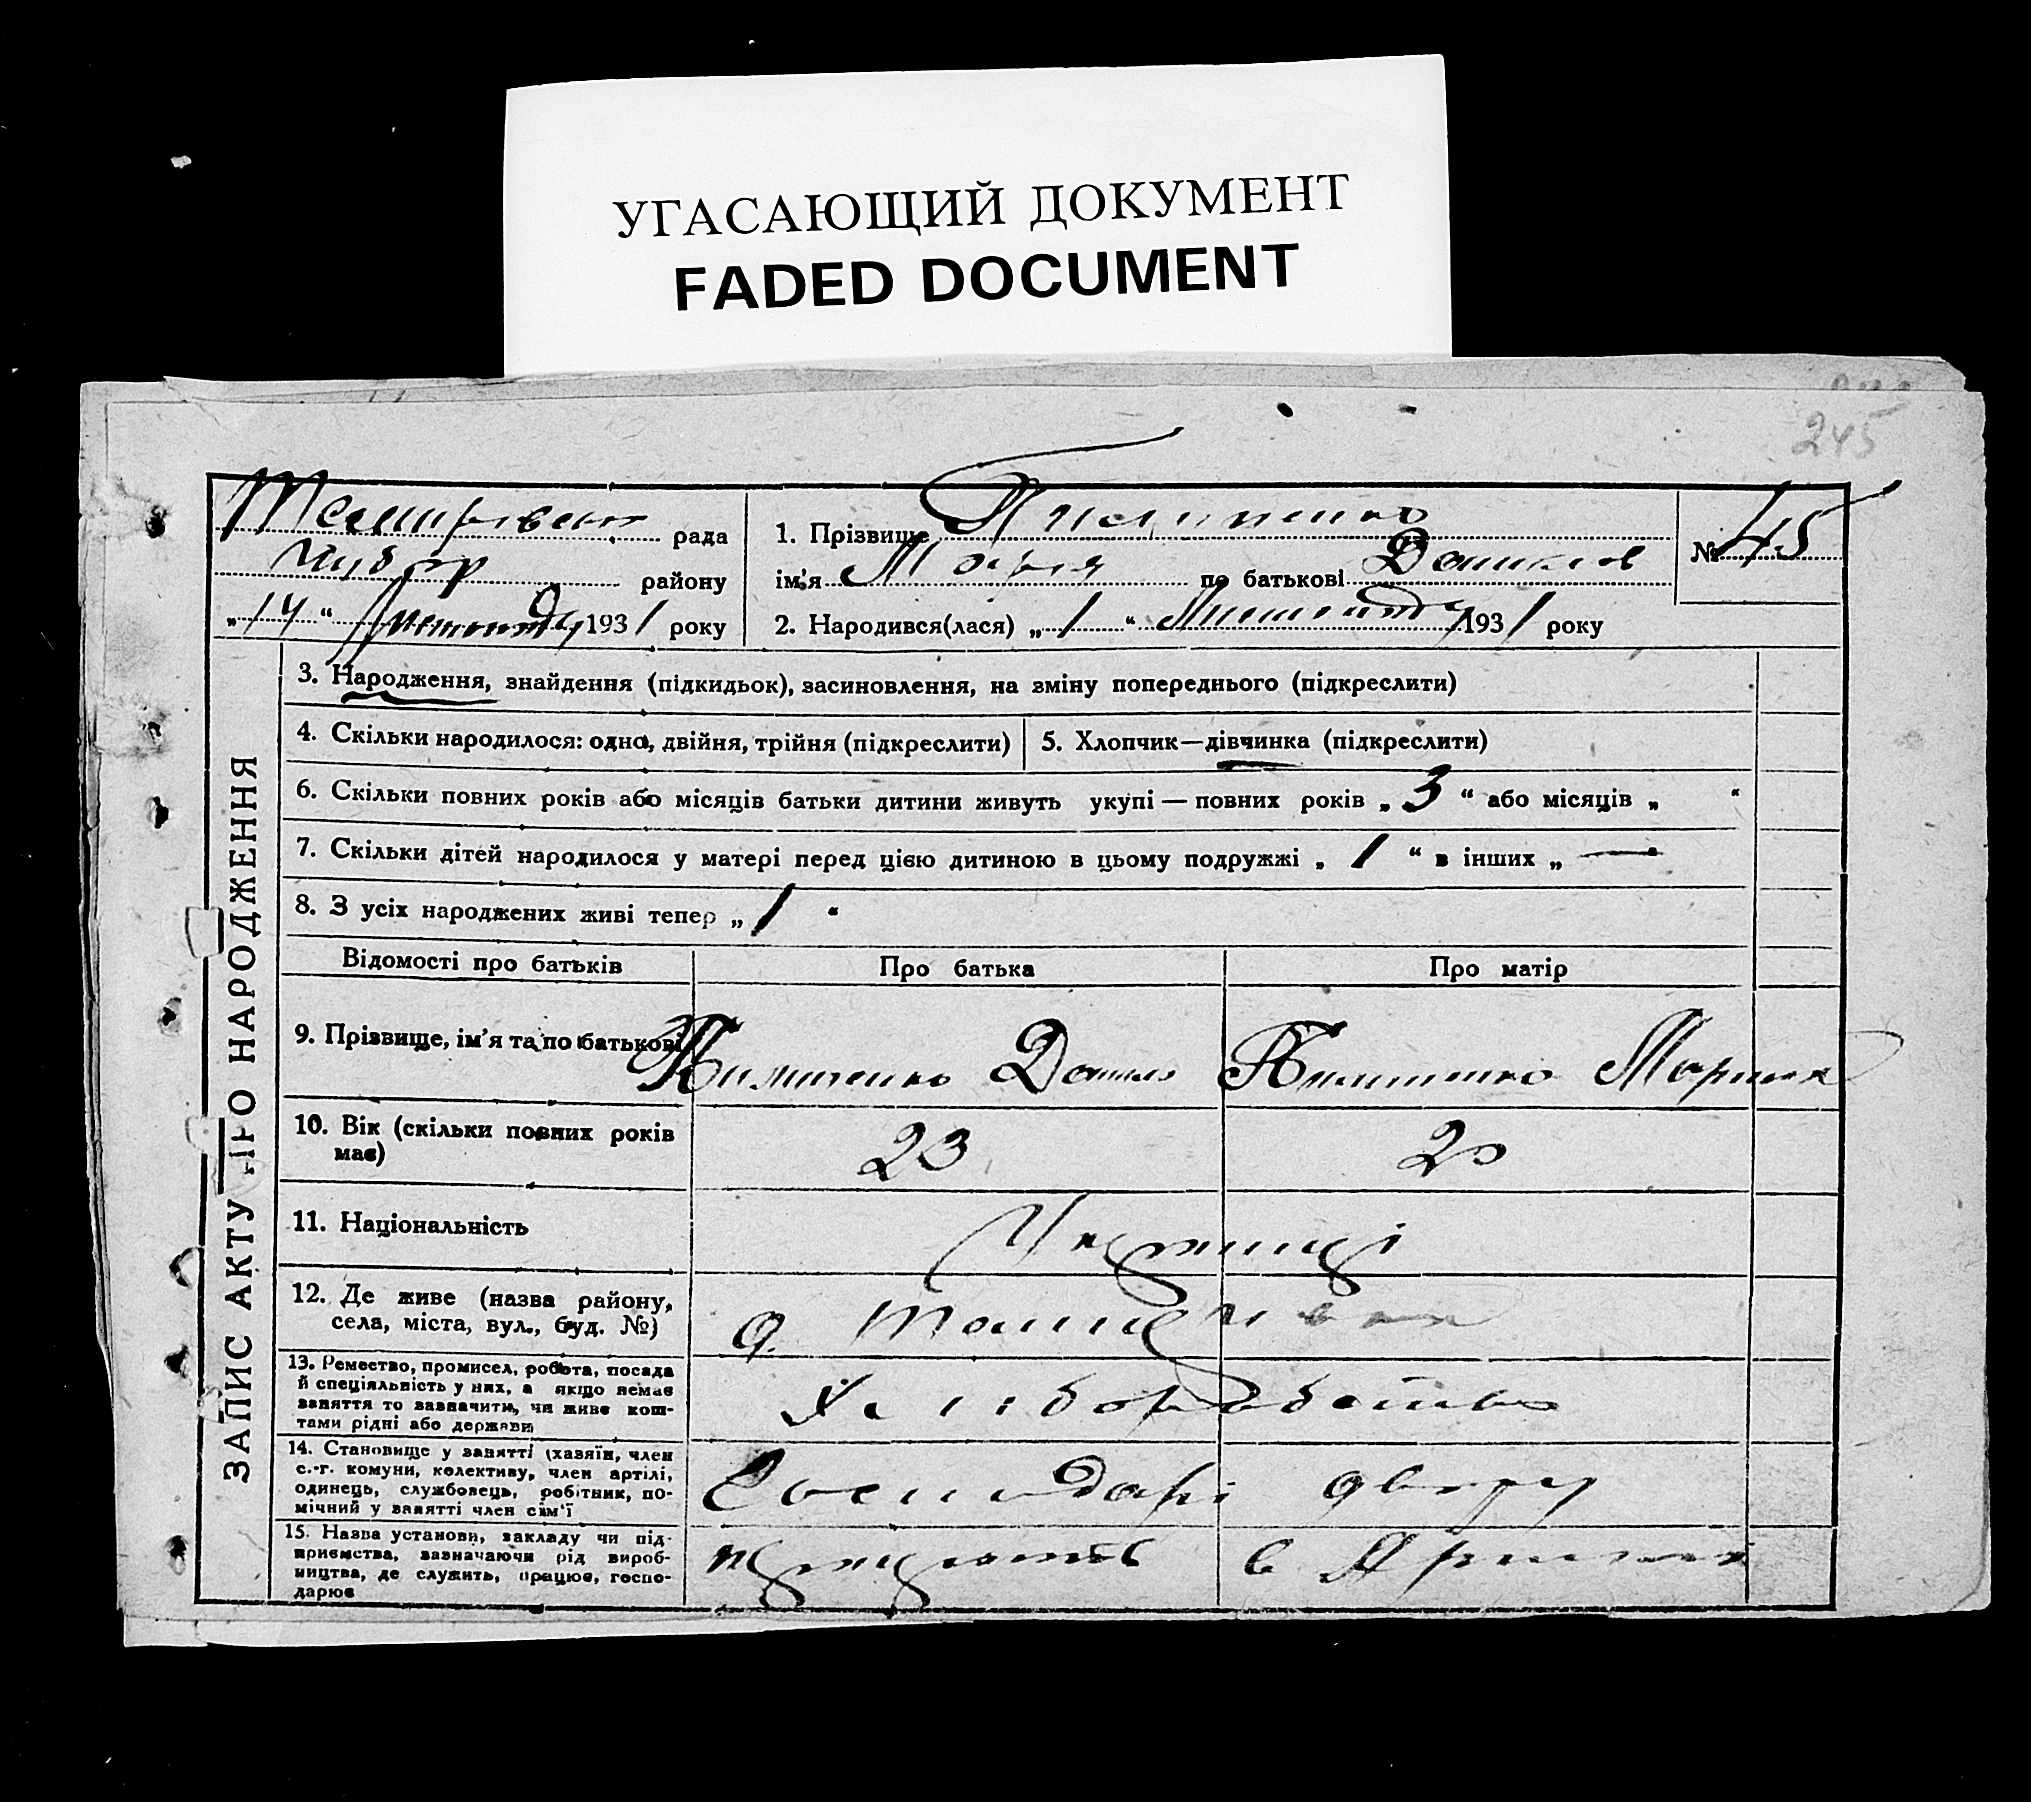 УГАСАЮЩИЙ ДОКУМЕНТ
FADED DOCUMENT
245
рада
району
„ 14 “ 1931 року
1. Прізвище
ім’я Марія по батькові Данилов
№ 45
2. Народився(лася) „ 1 “ 1931 року
ЗАПИС АКТУ ПРО НАРОДЖЕННЯ
3. Народження, знайдення (підкидьок), засиновлення, на зміну попереднього (підкреслити)
4. Скільки народилося: одно, двійня, трійня (підкреслити)
5. Хлопчик—дівчинка (підкреслити)
6. Скільки повних років або місяців батьки дитини живуть укупі — повних років „ 3 “ або місяців „ “
7. Скільки дітей народилося у матері перед цією дитиною в цьому подружжі „ 1 “ в інших „ — “
8. З усіх народжених живі тепер „ 1 “
Відомості про батьків
Про батька
Про матір
9. Прізвище, ім’я та по батькові
Данило
10. Вік (скільки повних років
має)
23
20
11. Національність
Українці
12. Де живе (назва району,
села, міста, вул., буд. №)
13. Ремество, промисел, робота, посада
й спеціяльність у них, а якщо немає
заняття то зазначити, чи живе кош-
тами рідні або держави
Хліборобство
14. Становище у занятті (хазяїн, член
с.-г. комуни, колективу, член артілі,
одинець, службовець, робітник, по-
мічний у занятті член сім’ї
Господарі двору
15. Назва установи, закладу чи під-
приємства, зазначаючи рід вироб-
ництва, де служить, працює, госпо-
дарює